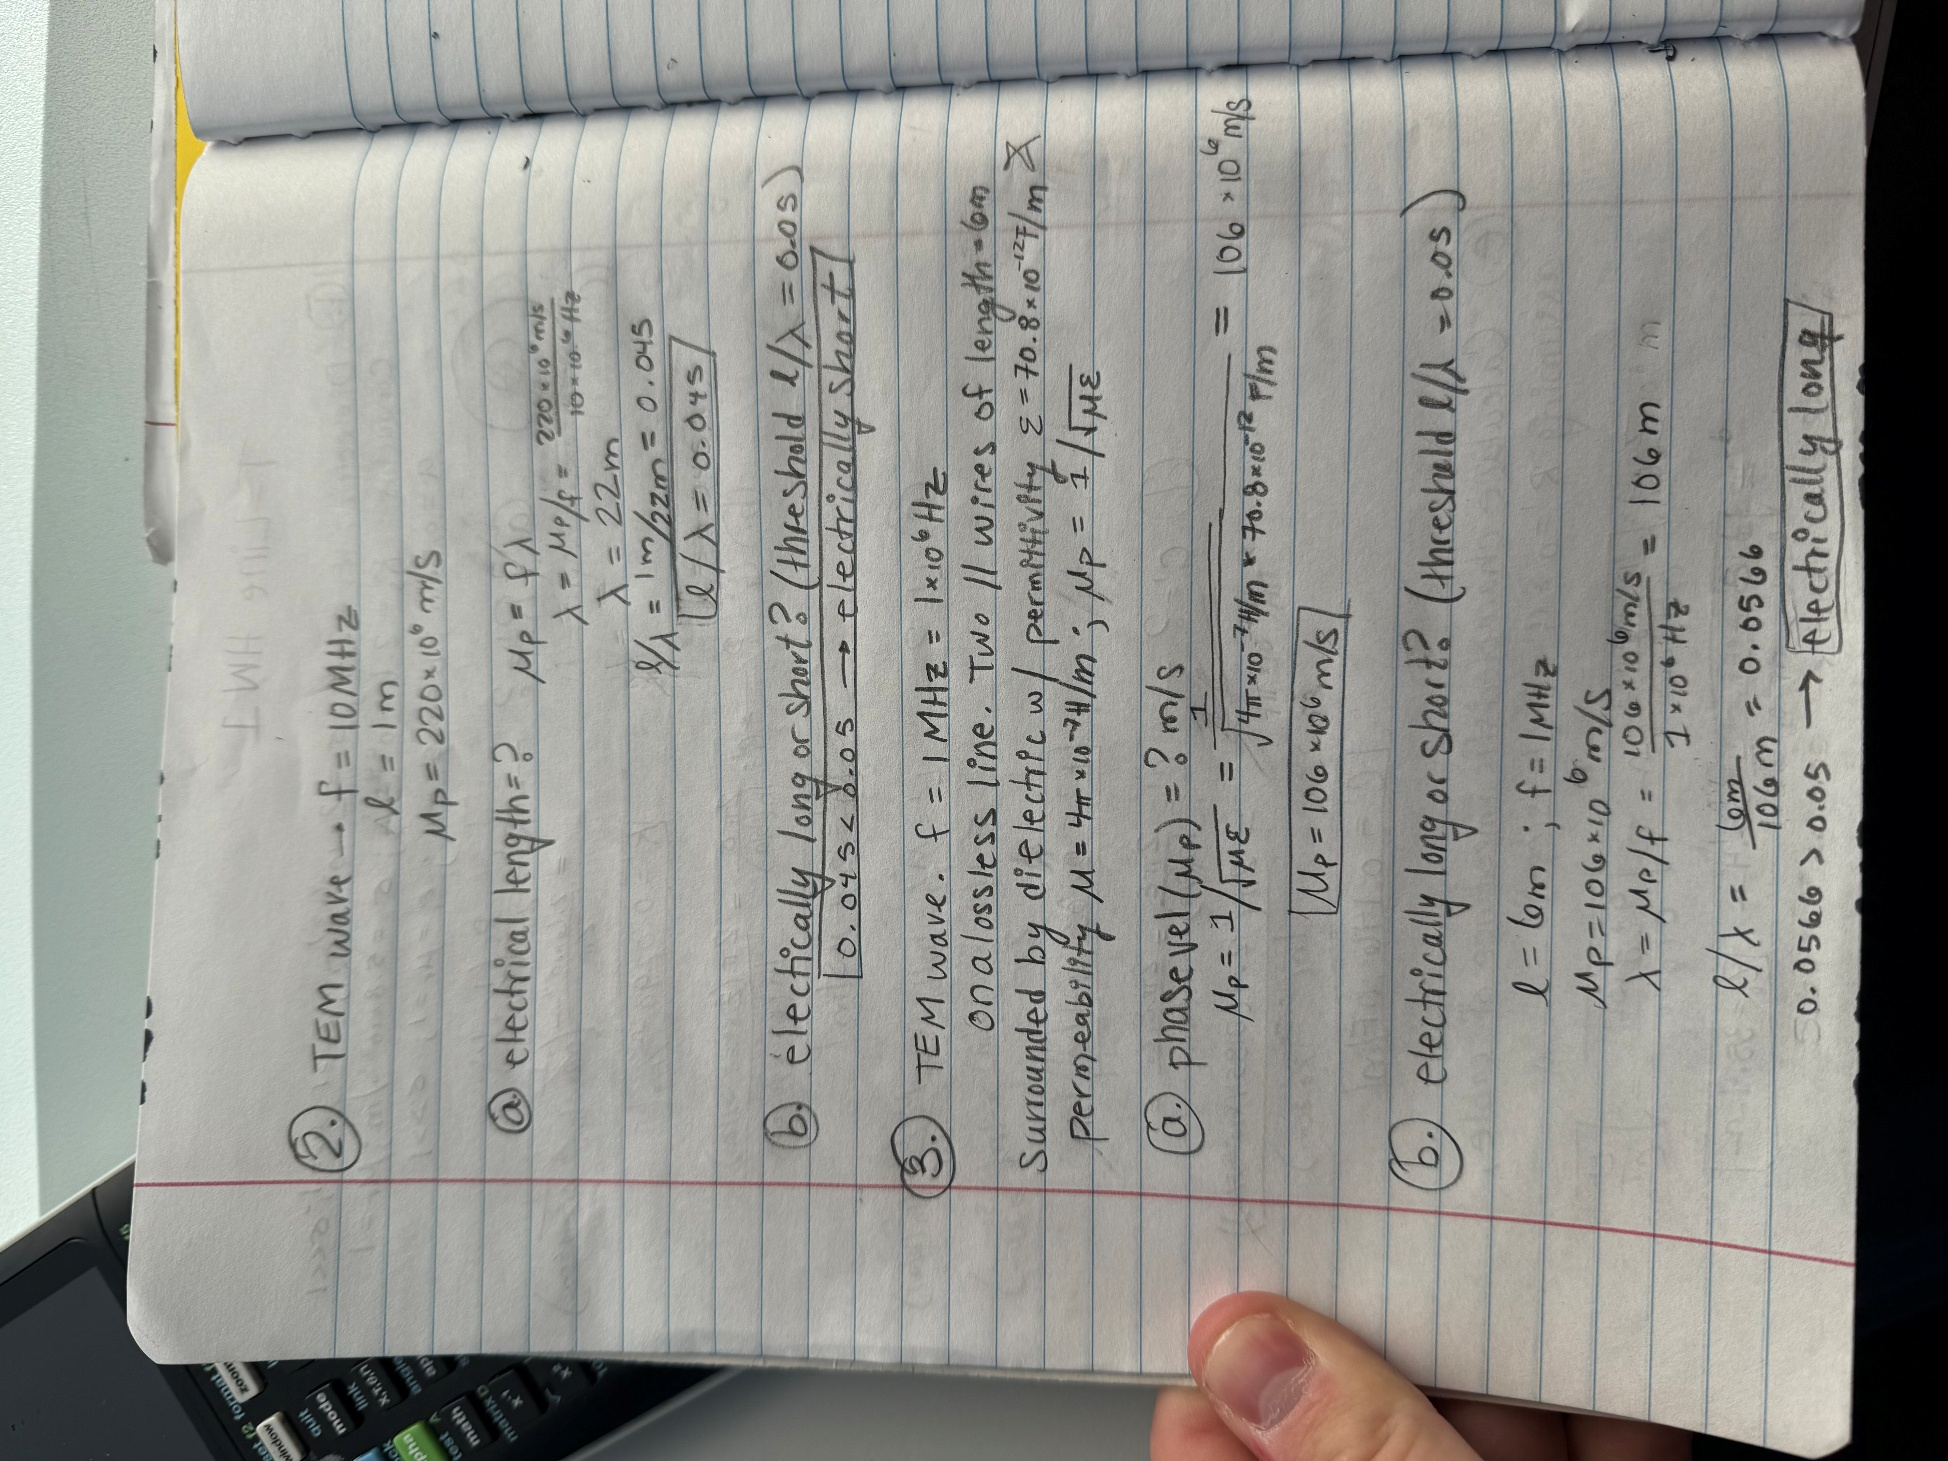 2. TEM wave → f = 10MHz
l = 1m
μp = 220×10⁶ m/s
a electrical length=? μp = fλ
λ = μp/f = 220×10⁶m/s / 10×10⁶ Hz
λ = 22m
l/λ = 1m/22m = 0.045
l/λ = 0.045
b. electrically long or short? (threshold l/λ = 0.05)
0.045 < 0.05 → electrically short
3. TEM wave. f = 1MHz = 1×10⁶Hz
on a lossless line. Two // wires of length=6m
surrounded by dielectric w/ permittivity ε = 70.8×10⁻¹²F/m &
permeability μ = 4π×10⁻⁷H/m ; μp = 1/√με
a. phase vel (μp) = ? m/s
μp = 1/√με = 1/√4π×10⁻⁷H/m × 70.8×10⁻¹² F/m = 106×10⁶ m/s
μp = 106×10⁶ m/s
b. electrically long or short? (threshold l/λ = 0.05)
l = 6m ; f = 1MHz
μp = 106×10⁶ m/s
λ = μp/f = 106×10⁶m/s / 1×10⁶ Hz = 106m
l/λ = 6m/106m = 0.0566
0.0566 > 0.05 → electrically long
zoom
format
mode
quit
window
link
X,T,θ,n
math
test A
matrix D
x⁻¹
x²